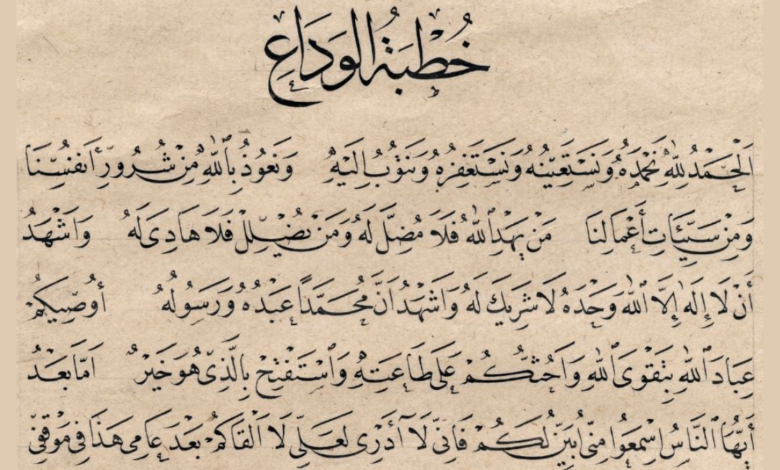 خُطْبَةُ الْوَدَاعِ
اَلْحَمْدُ لِلّٰهِ نَحْمَدُهُ وَنَسْتَعِينُهُ وَنَسْتَغْفِرُهُ وَنَتُوبُ اِلَيْهِ وَنَعُوذُ بِاللّٰهِ مِنْ شُرُورِ أَنفُسِنَا
وَمِنْ سَيِّئَاتِ أَعْمَالِنَا مَنْ يَهْدِ اللّٰهُ فَلَا مُضِلَّ لَهُ وَمَنْ يُضْلِلْ فَلَا هَادِىَ لَهُ وَاَشْهَدُ
أَنْ لَا إِلٰهَ اِلَّا اللّٰهُ وَحْدَهُ لَا شَرِيكَ لَهُ وَاَشْهَدُ اَنَّ مُحَمَّدًا عَبْدُهُ وَرَسُولُهُ أُوصِيكُمْ
عِبَادَ اللّٰهِ بِتَقْوَى اللّٰهِ وَاَحُثُّكُمْ عَلَى طَاعَتِهِ وَاَسْتَفْتِحُ بِالَّذِى هُوَ خَيْرٌ اَمَّا بَعْدُ
أَيُّهَا النَّاسُ اِسْمَعُوا مِنِّى اُبَيِّنُ لَكُمْ فَاِنِّى لَا أَدْرِى لَعَلِّى لَا اَلْقَاكُمْ بَعْدَ عَامِى هَذَا فِى مَوْقِفِى